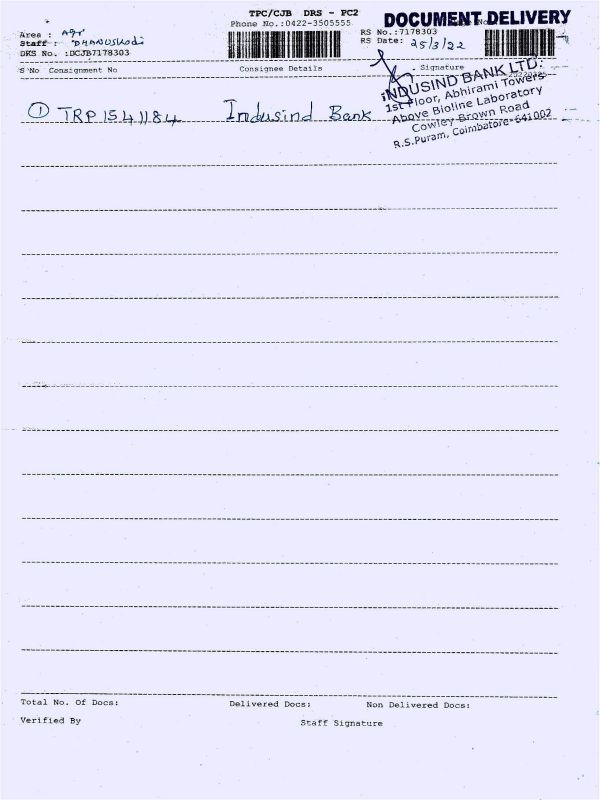 TPC/CJB DRS - PC2
DOCUMENT DELIVERY
Phone No.:0422-3505555
Area : Agr
RS No.:7178303
Staff : DHANUSHODI
RS Date: 25/3/22
DRS No. :DCJB7178303
S'No Consignment No Consignee Details Signature
INDUSIND BANK LTD.
1st Floor, Abhirami Towers
Above Bioline Laboratory
Cowley Brown Road
R.S.Puram, Coimbatore-641002
1 TRP1541184 Indusind Bank
Total No. Of Docs: Delivered Docs: Non Delivered Docs:
Verified By Staff Signature